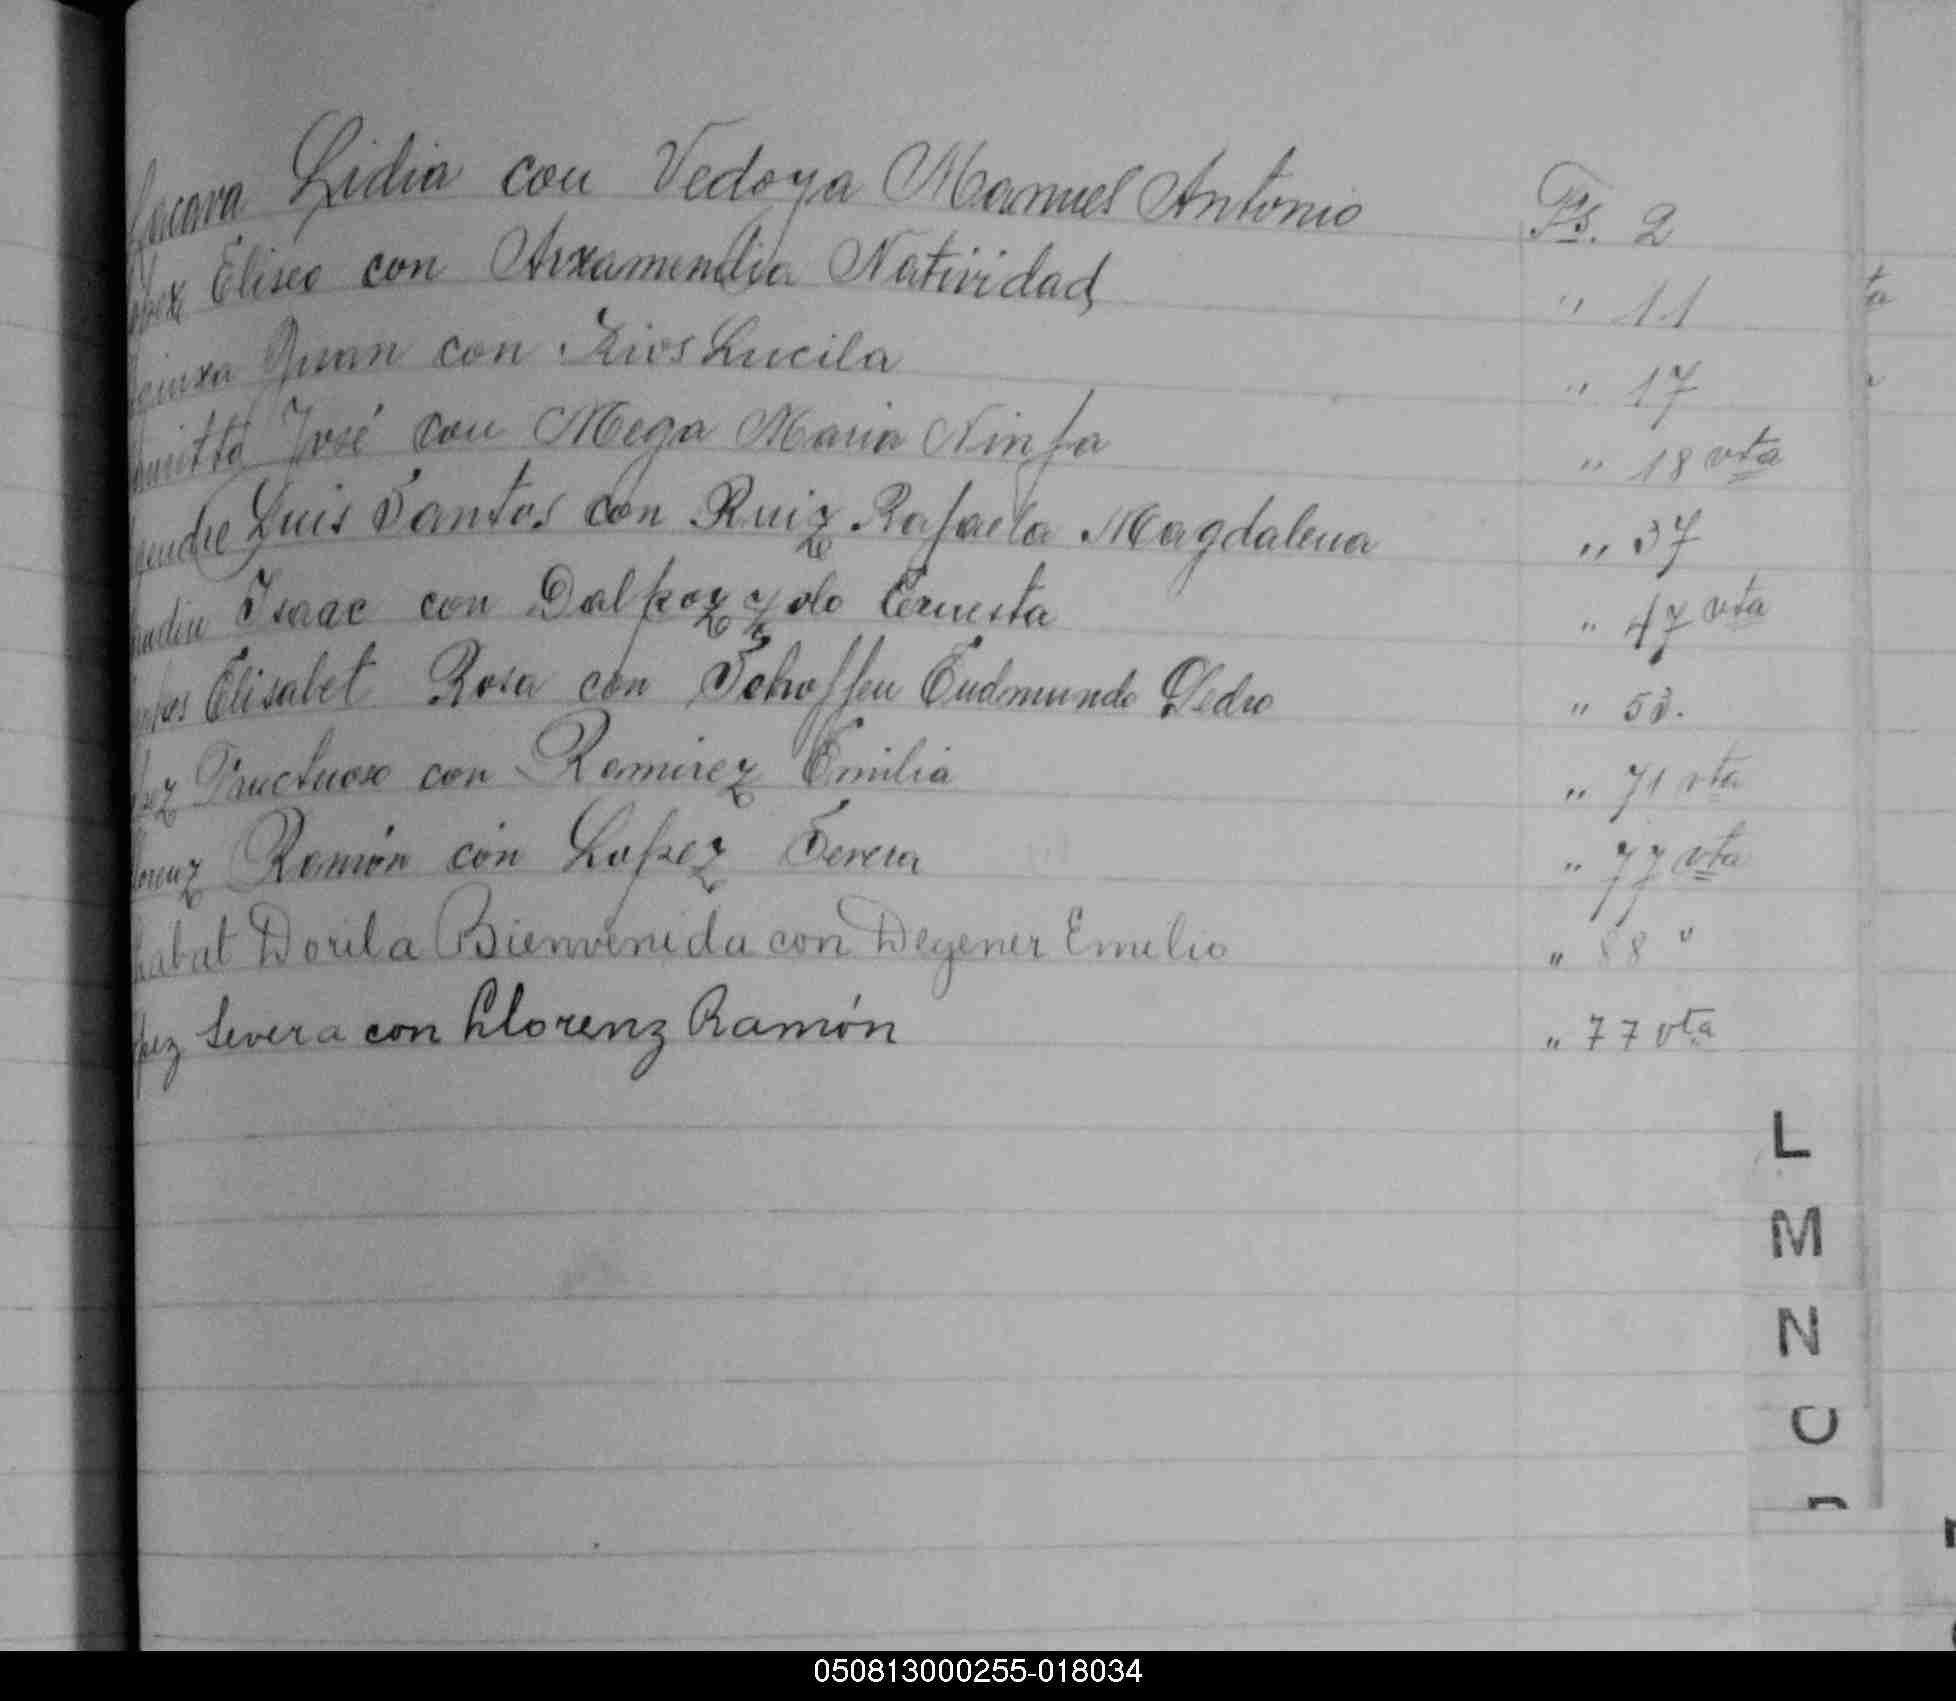 Lacava Lidia con Vedoya Manuel Antonio Fs. 2
Eliseo con Arxamendia Natividad " 11
Juan con Rios Lucila " 17
José con Mega Maria Ninfa " 18 vta
Luis Santos con Ruiz Rafaela Magdalena " 37
Isaac con Dalpozzolo Ernesta " 47 vta
Elisabet Rosa con Schoffen Eudmundo Pedro " 53.
Fructuoso con Ramirez Emilia " 71 vta
Ramón con Lopez Severa " 77 vta
Dorila Bienvenida con Degener Emilio " 88 "
pez Severa con Llorenz Ramón " 77 vta
L
M
N
O
050813000255-018034